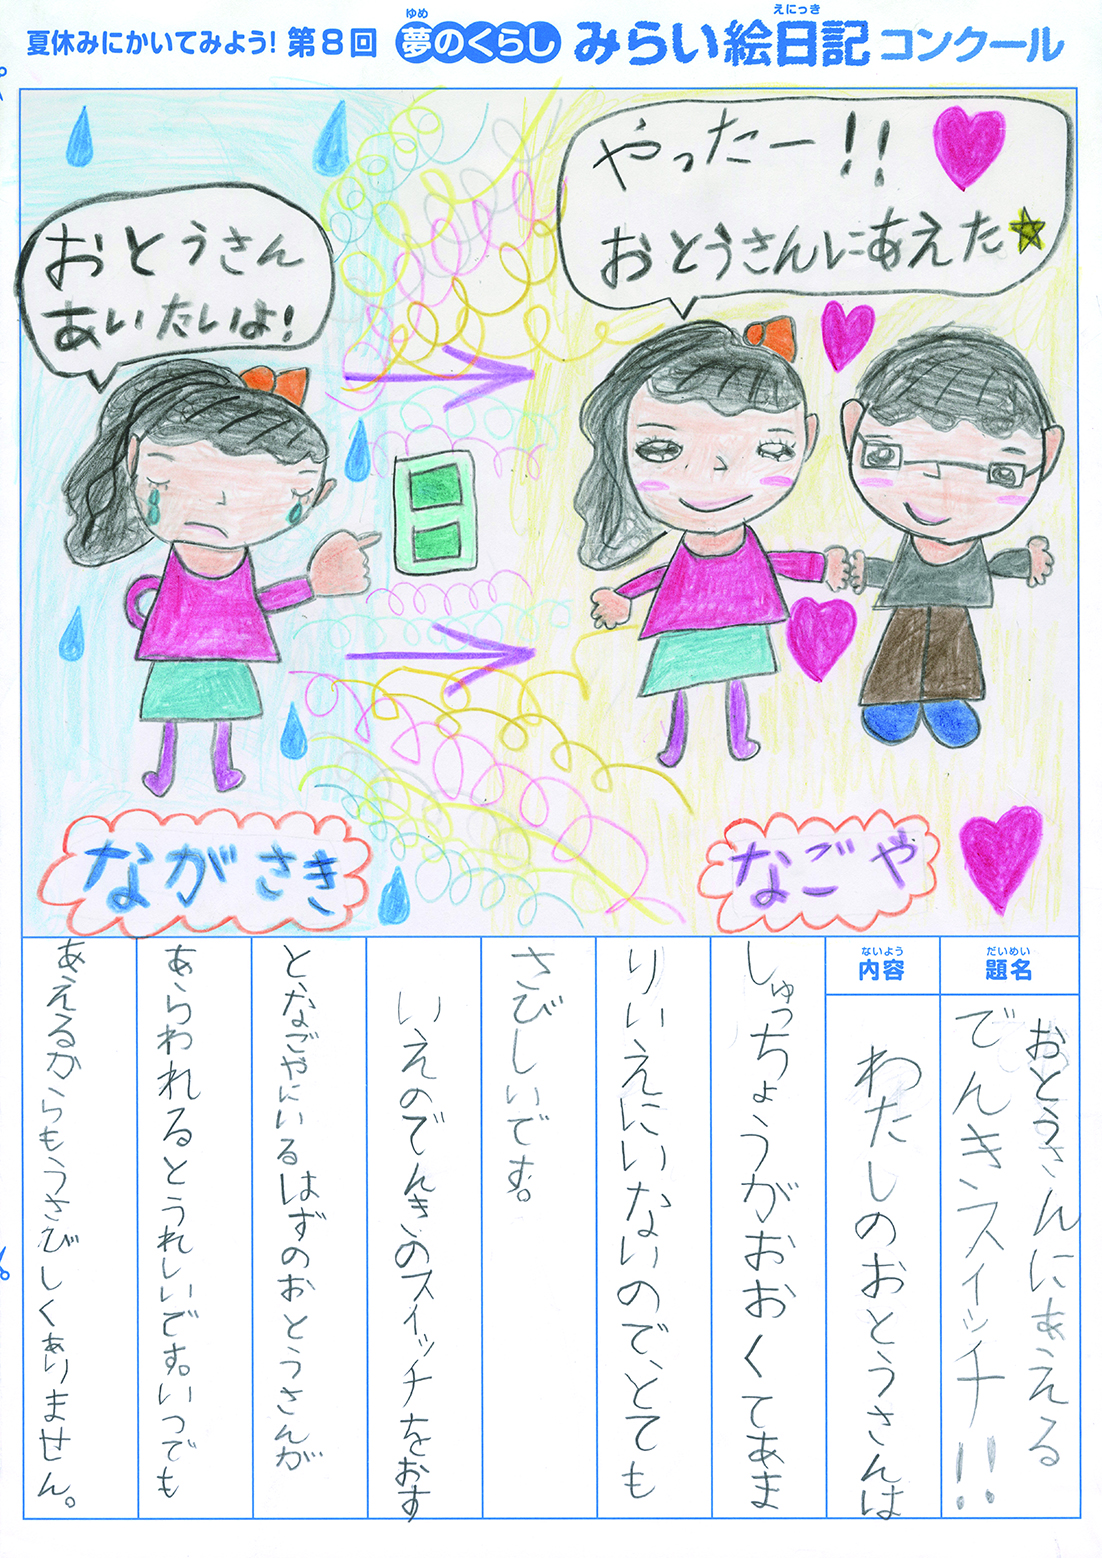 夏休みにかいてみよう! 第8回 夢のくらし みらい絵日記 コンクール
ゆめ
えにっき
おとうさん
あいたいよ!
やったー!!
おとうさんにあえた
ながさき
なごや
だいめい
題名
おとうさんにあえる
でんきスイッチ!!
ないよう
内容
わたしのおとうさんは
しゅっちょうがおおくてあま
りいえにいないので、とても
さびしいです。
いえのでんきのスイッチをおす
と、なごやにいるはずのおとうさんが
あらわれるとうれしいです。いつでも
あえるからもうさびしくありません。